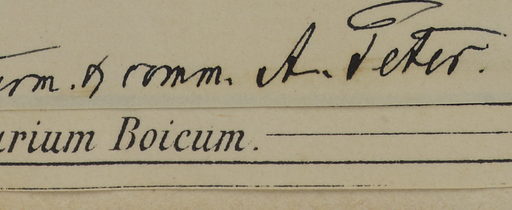 comm. A. Peter.
arium Boicum.